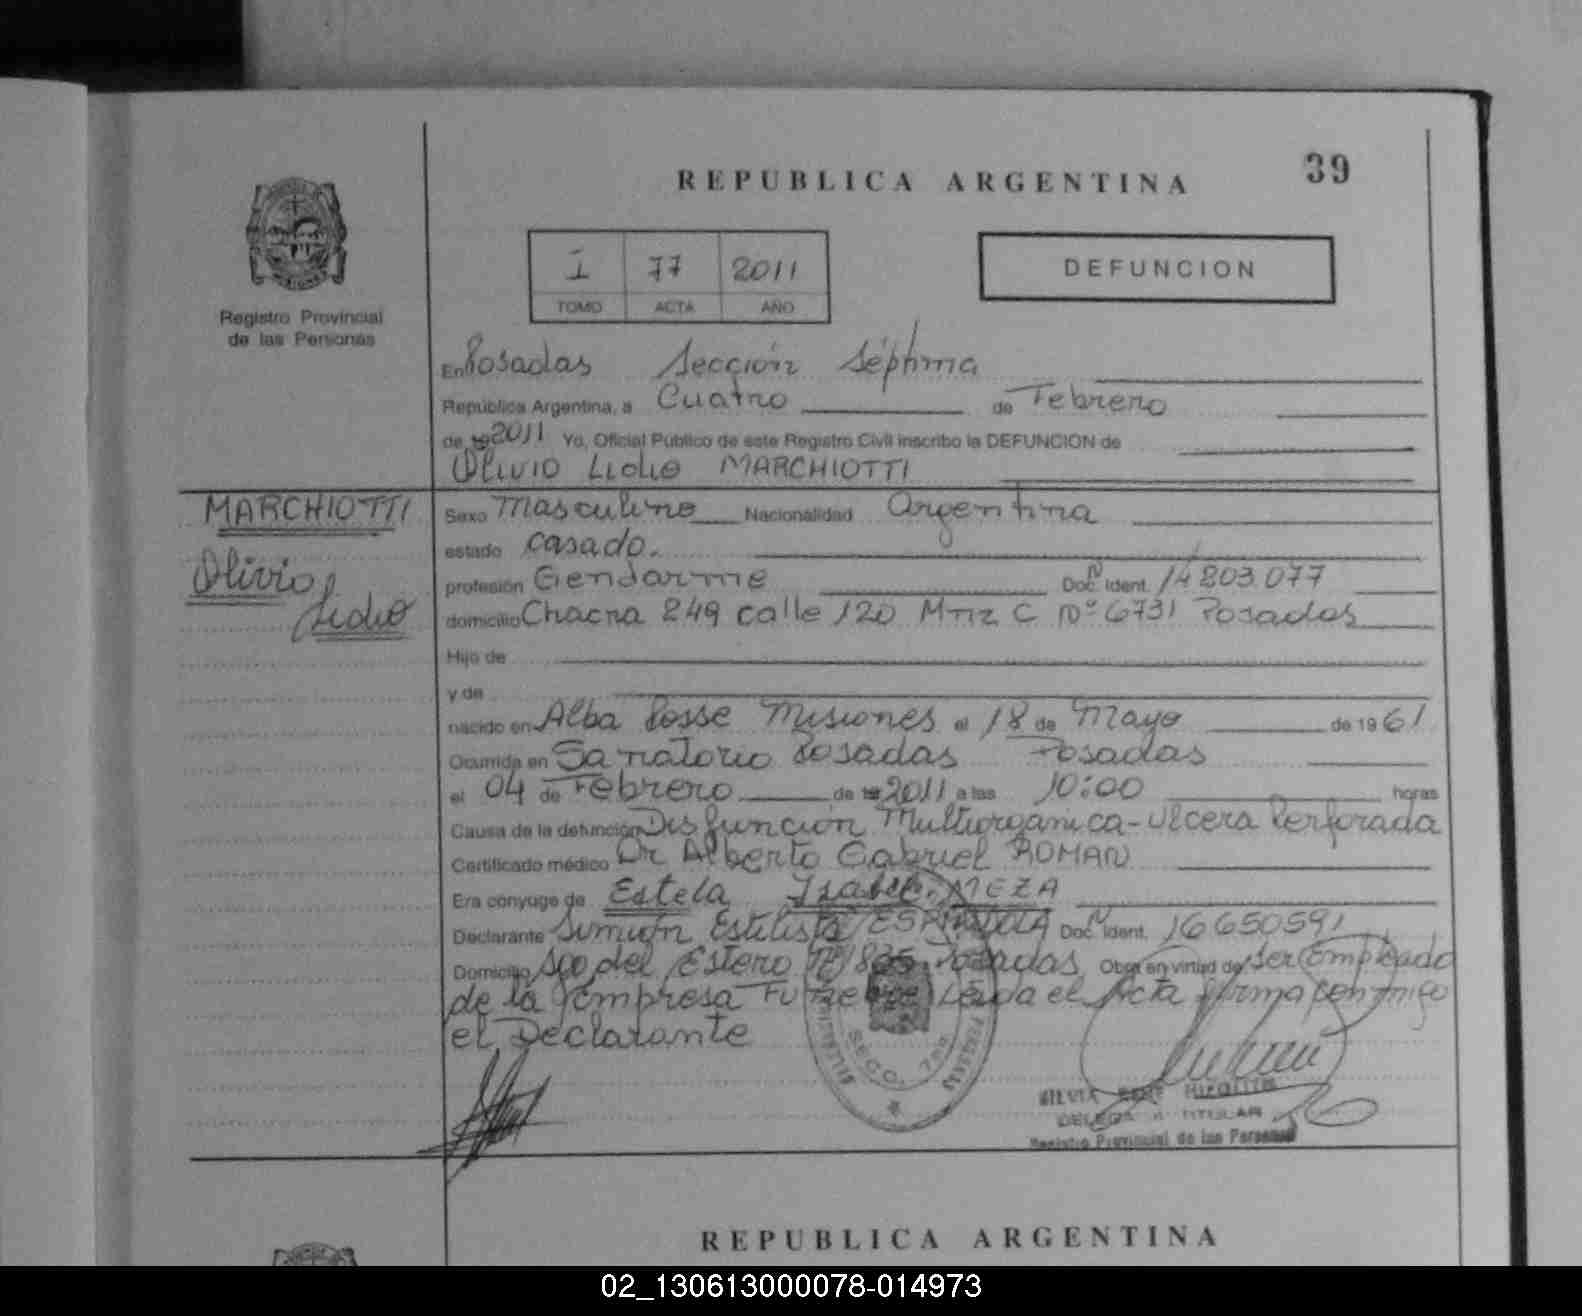 39
REPUBLICA ARGENTINA
I 77 2011
TOMO ACTA AÑO
DEFUNCION
Registro Provincial
de las Personas
En Posadas Sección Séptima
República Argentina, a Cuatro de Febrero
de 19 2011 Yo, Oficial Público de este Registro Civil inscribo la DEFUNCION de
Olivio Lidio MARCHIOTTI
MARCHIOTTI
Olivio
Lidio
Sexo Masculino Nacionalidad Argentina
estado casado.
profesión Gendarme Doc. Ident. 14 203.077
domicilio Chacra 249 calle 120 Mnz C Nº 6731 Posadas
Hijo de
y de
nacido en Alba Posse Misiones el 18 de Mayo de 19 61
Ocurrida en Sanatorio Posadas Posadas
el 04 de Febrero de 19 2011 a las 10:00 horas
Causa de la defunción Disfunción Multiorganica - Ulcera Perforada
Certificado médico Dr Alberto Gabriel ROMAN
Era cónyuge de Estela Isabel MEZA
Declarante Simeón Estilista ESPINDOLA Doc. Ident. 16650591
Domicilio Sgo del Estero Nº 1835 Posadas Obra en virtud de ser Empleado
de la Empresa Funebre Leida el Acta firma conmigo
el Declarante
SECC. 7ma
SILVIA
DELEGADA TITULAR
Registro Provincial de las Personas
REPUBLICA ARGENTINA
02_130613000078-014973